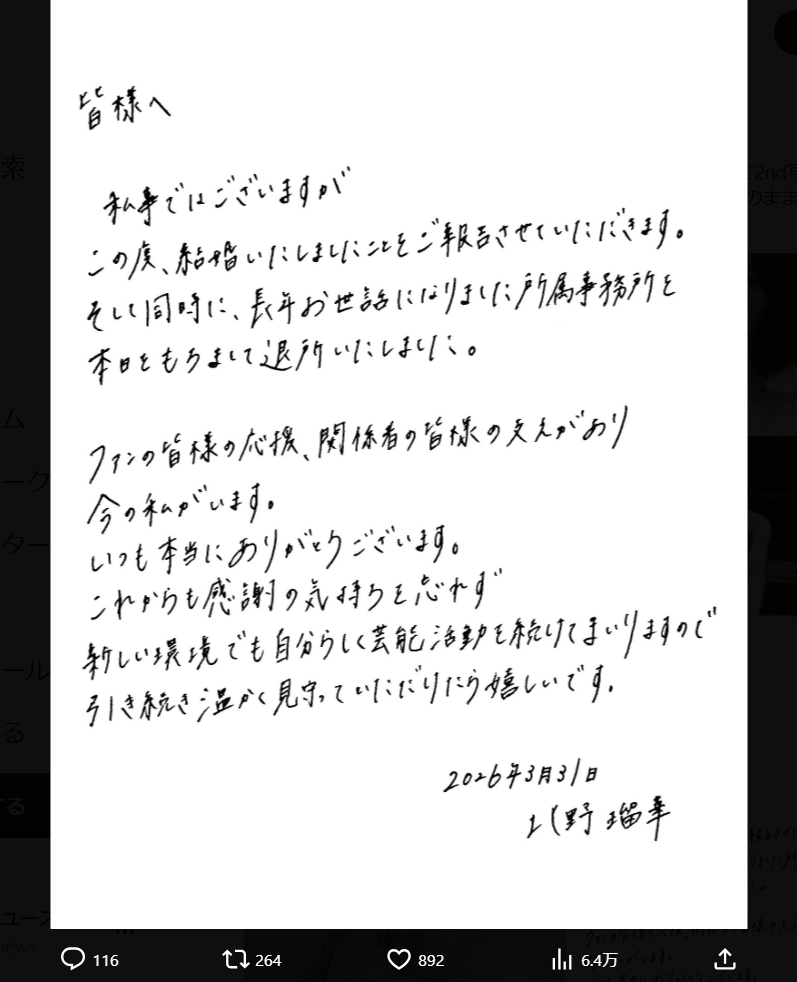 皆様へ
私事ではございますが
この度、結婚いたしましたことをご報告させていただきます。
そして同時に、長年お世話になりました所属事務所を
本日をもちまして退所いたしました。
ファンの皆様の応援、関係者の皆様の支えがあり
今の私がいます。
いつも本当にありがとうございます。
これからも感謝の気持ちを忘れず
新しい環境でも自分らしく芸能活動を続けてまいりますので
引き続き温かく見守っていただけたら嬉しいです。
2026年3月31日
北野瑠華
116
264
892
6.4万